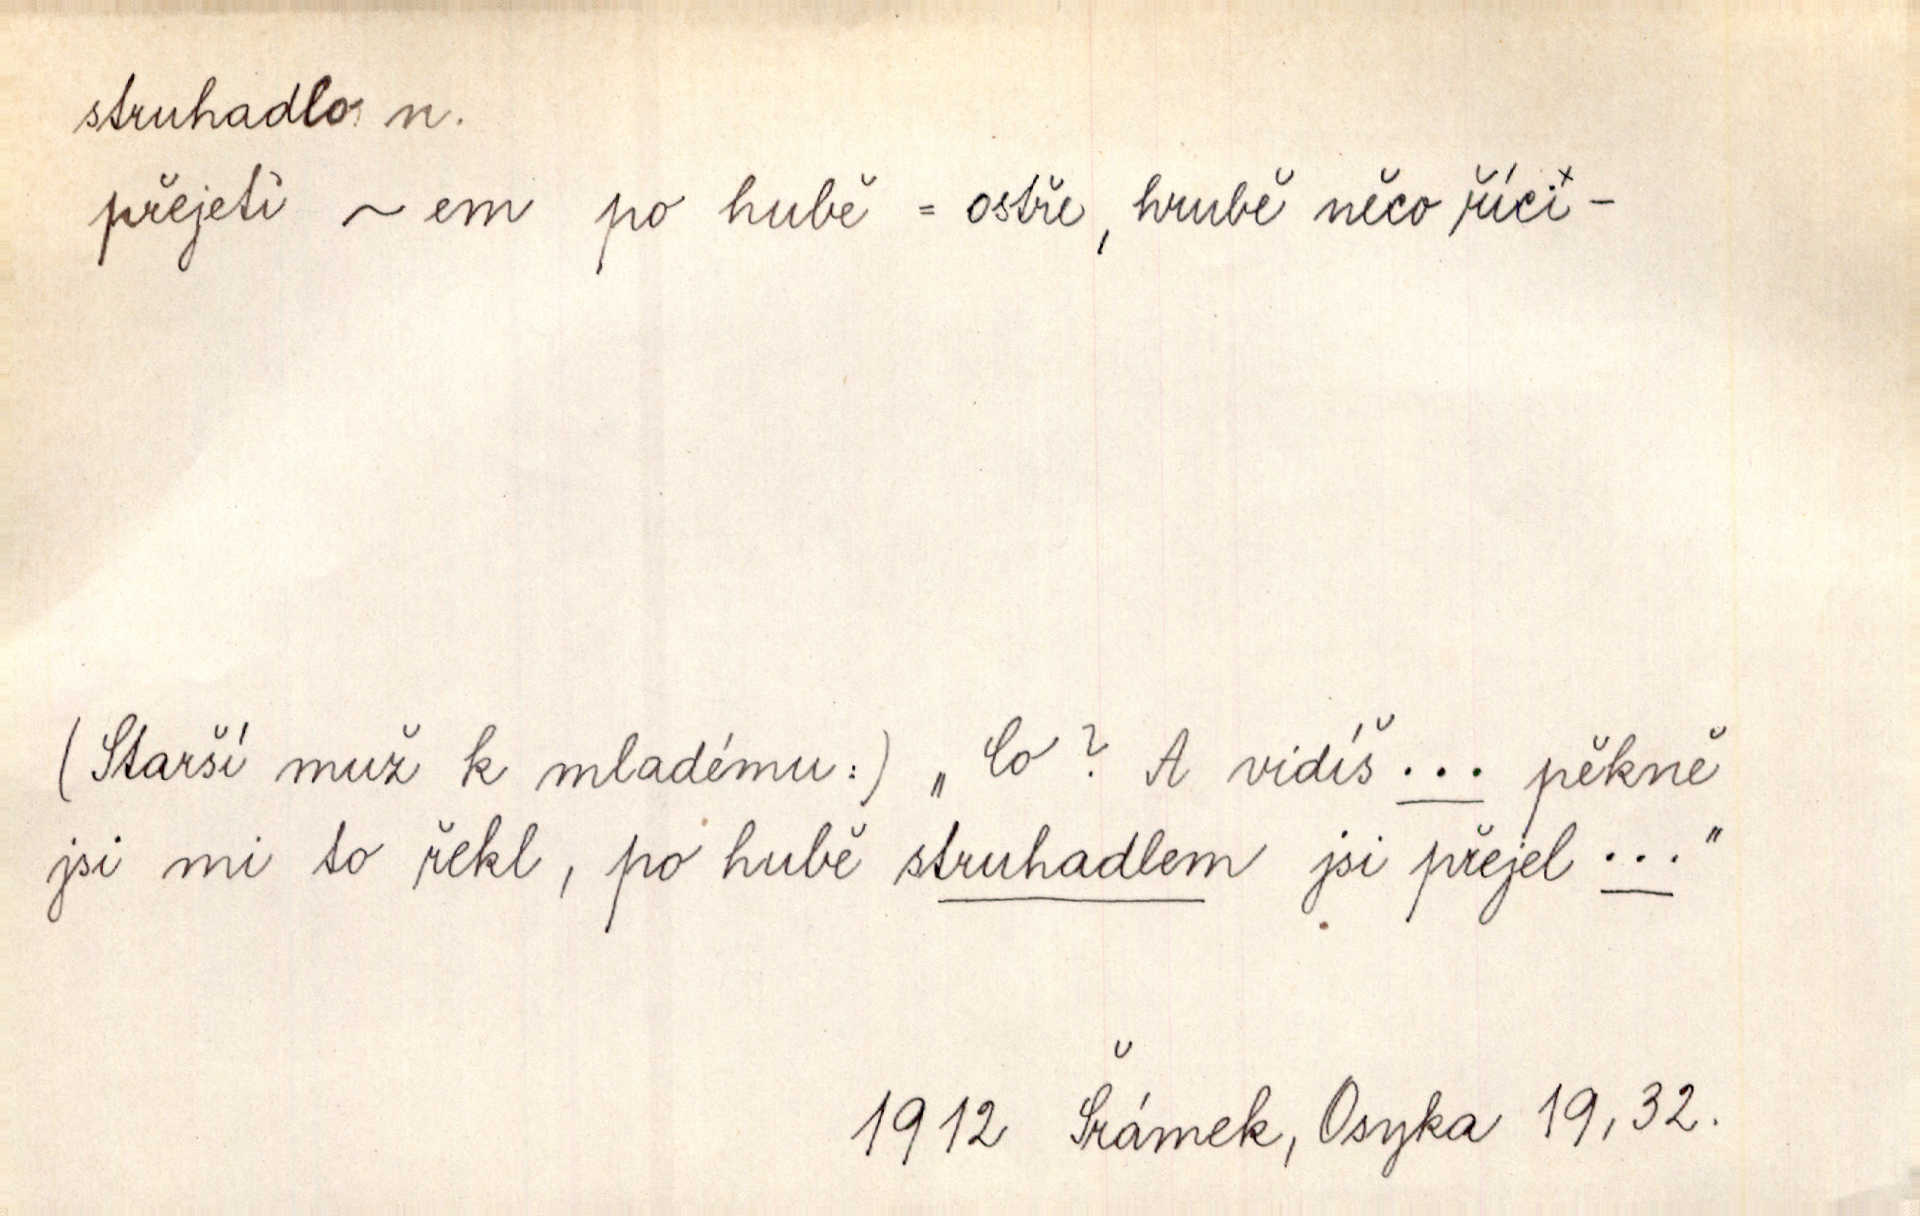 struhadlo n.
přejeti ~ em po hubě = ostře, hrubě něco říci × -
(Starší muž k mladému:) „Co? A vidíš ... pěkně
jsi mi to řekl, po hubě struhadlem jsi přejel ..."
1912 Šrámek, Osyka 19, 32.